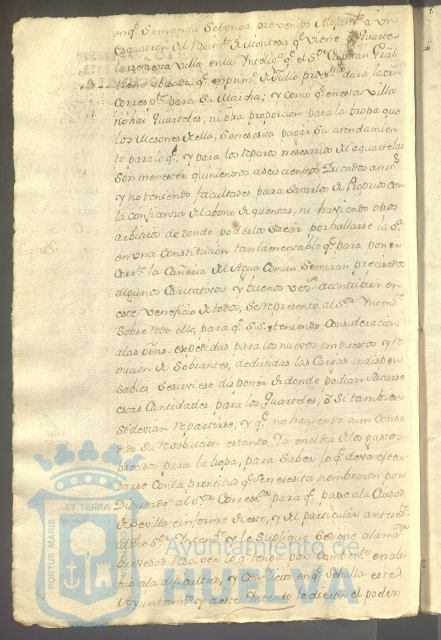 en qe. Se manda Se tenga prevenido Alojamto. a un
esquadron del Reximto. de Montesa qe. viene a Quarte
larse a esta villa, en la Intelija. qe. el Sor. Capitan Gral
tiene ofizado qe. en primo. de Julio proxmo. dará la orn
Corresp.te para Su Marcha; y como qe. en esta villa
no hai Quarteles, ni otra proporcion para la tropa que
los Mesones de ella, Se necesita pagar Su arrendamien
to para lo qe. y para los reparos nesesarios del aquartelar
Son menester quinientos a seiscientos Ducados ann.s
y no teniendo facultades para Sacarlos de Propios con
la confianza del abono de quentas, ni haviendo otros
arbitrios de donde poderlos Sacar por hallarse la Va.
en una Constitucion tan lamentable qe. para poner
Corrte. la Cañeria del Agua Comun Se miran precisados
algunos Caritativos y buenos vezs. a contribuir en
este veneficio de todos, Se representó al Sor. Yntende.
Sobre todo ello, para qe. S.S. teniendo Consideracion
a las orns. expedidas para los nuevos impuestos y re
mision de Sobrantes, deducidas las Cargas indispen
sables, Se sirviese disponer de donde podian Sacarse
estas Cantidades para los Quarteles, o Si tambien
Se devian repartirse, y qe. no haviendo aun Conse
dido Su resolucion estando
para la tropa, para Saber lo qe. deva ejecu
tarse Con la prontitud qe. Se nesesita nombraron por
Diputado al Sor. Corresor. para qe. pase a la Ciudad
de Sevilla e informe de este, y del particular antesede
a dho Sor. Yntende. y le Suplique Se digne a la mayor
brevedad resolver lo qe. tenga por Combente. en ali
bio a la dificultad, y Conflicto en qe. Se halla este
Ayuntamto. y a este Intento le dieron el poder
PORTUS MARIS
ET TERRAE
Ayuntamiento de
HUELVA